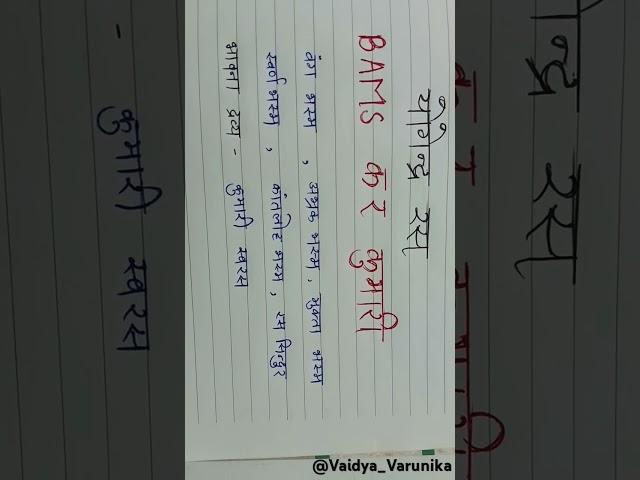 योगेन्द्र रस
BAMS कर कुमारी
वंग भस्म , अभ्रक भस्म , मुक्ता भस्म
स्वर्ण भस्म , कांतलोह भस्म , रस सिन्दुर
भावना द्रव्य - कुमारी स्वरस
@Vaidya_Varunika